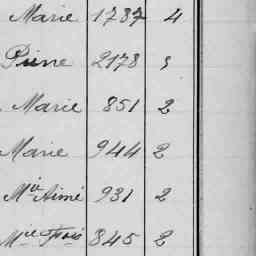 Marie 1737 4
Pierre 2178 3
Marie 851 2
Marie 944 2
Mie Aimé 931 2
Mie Frois 845 2